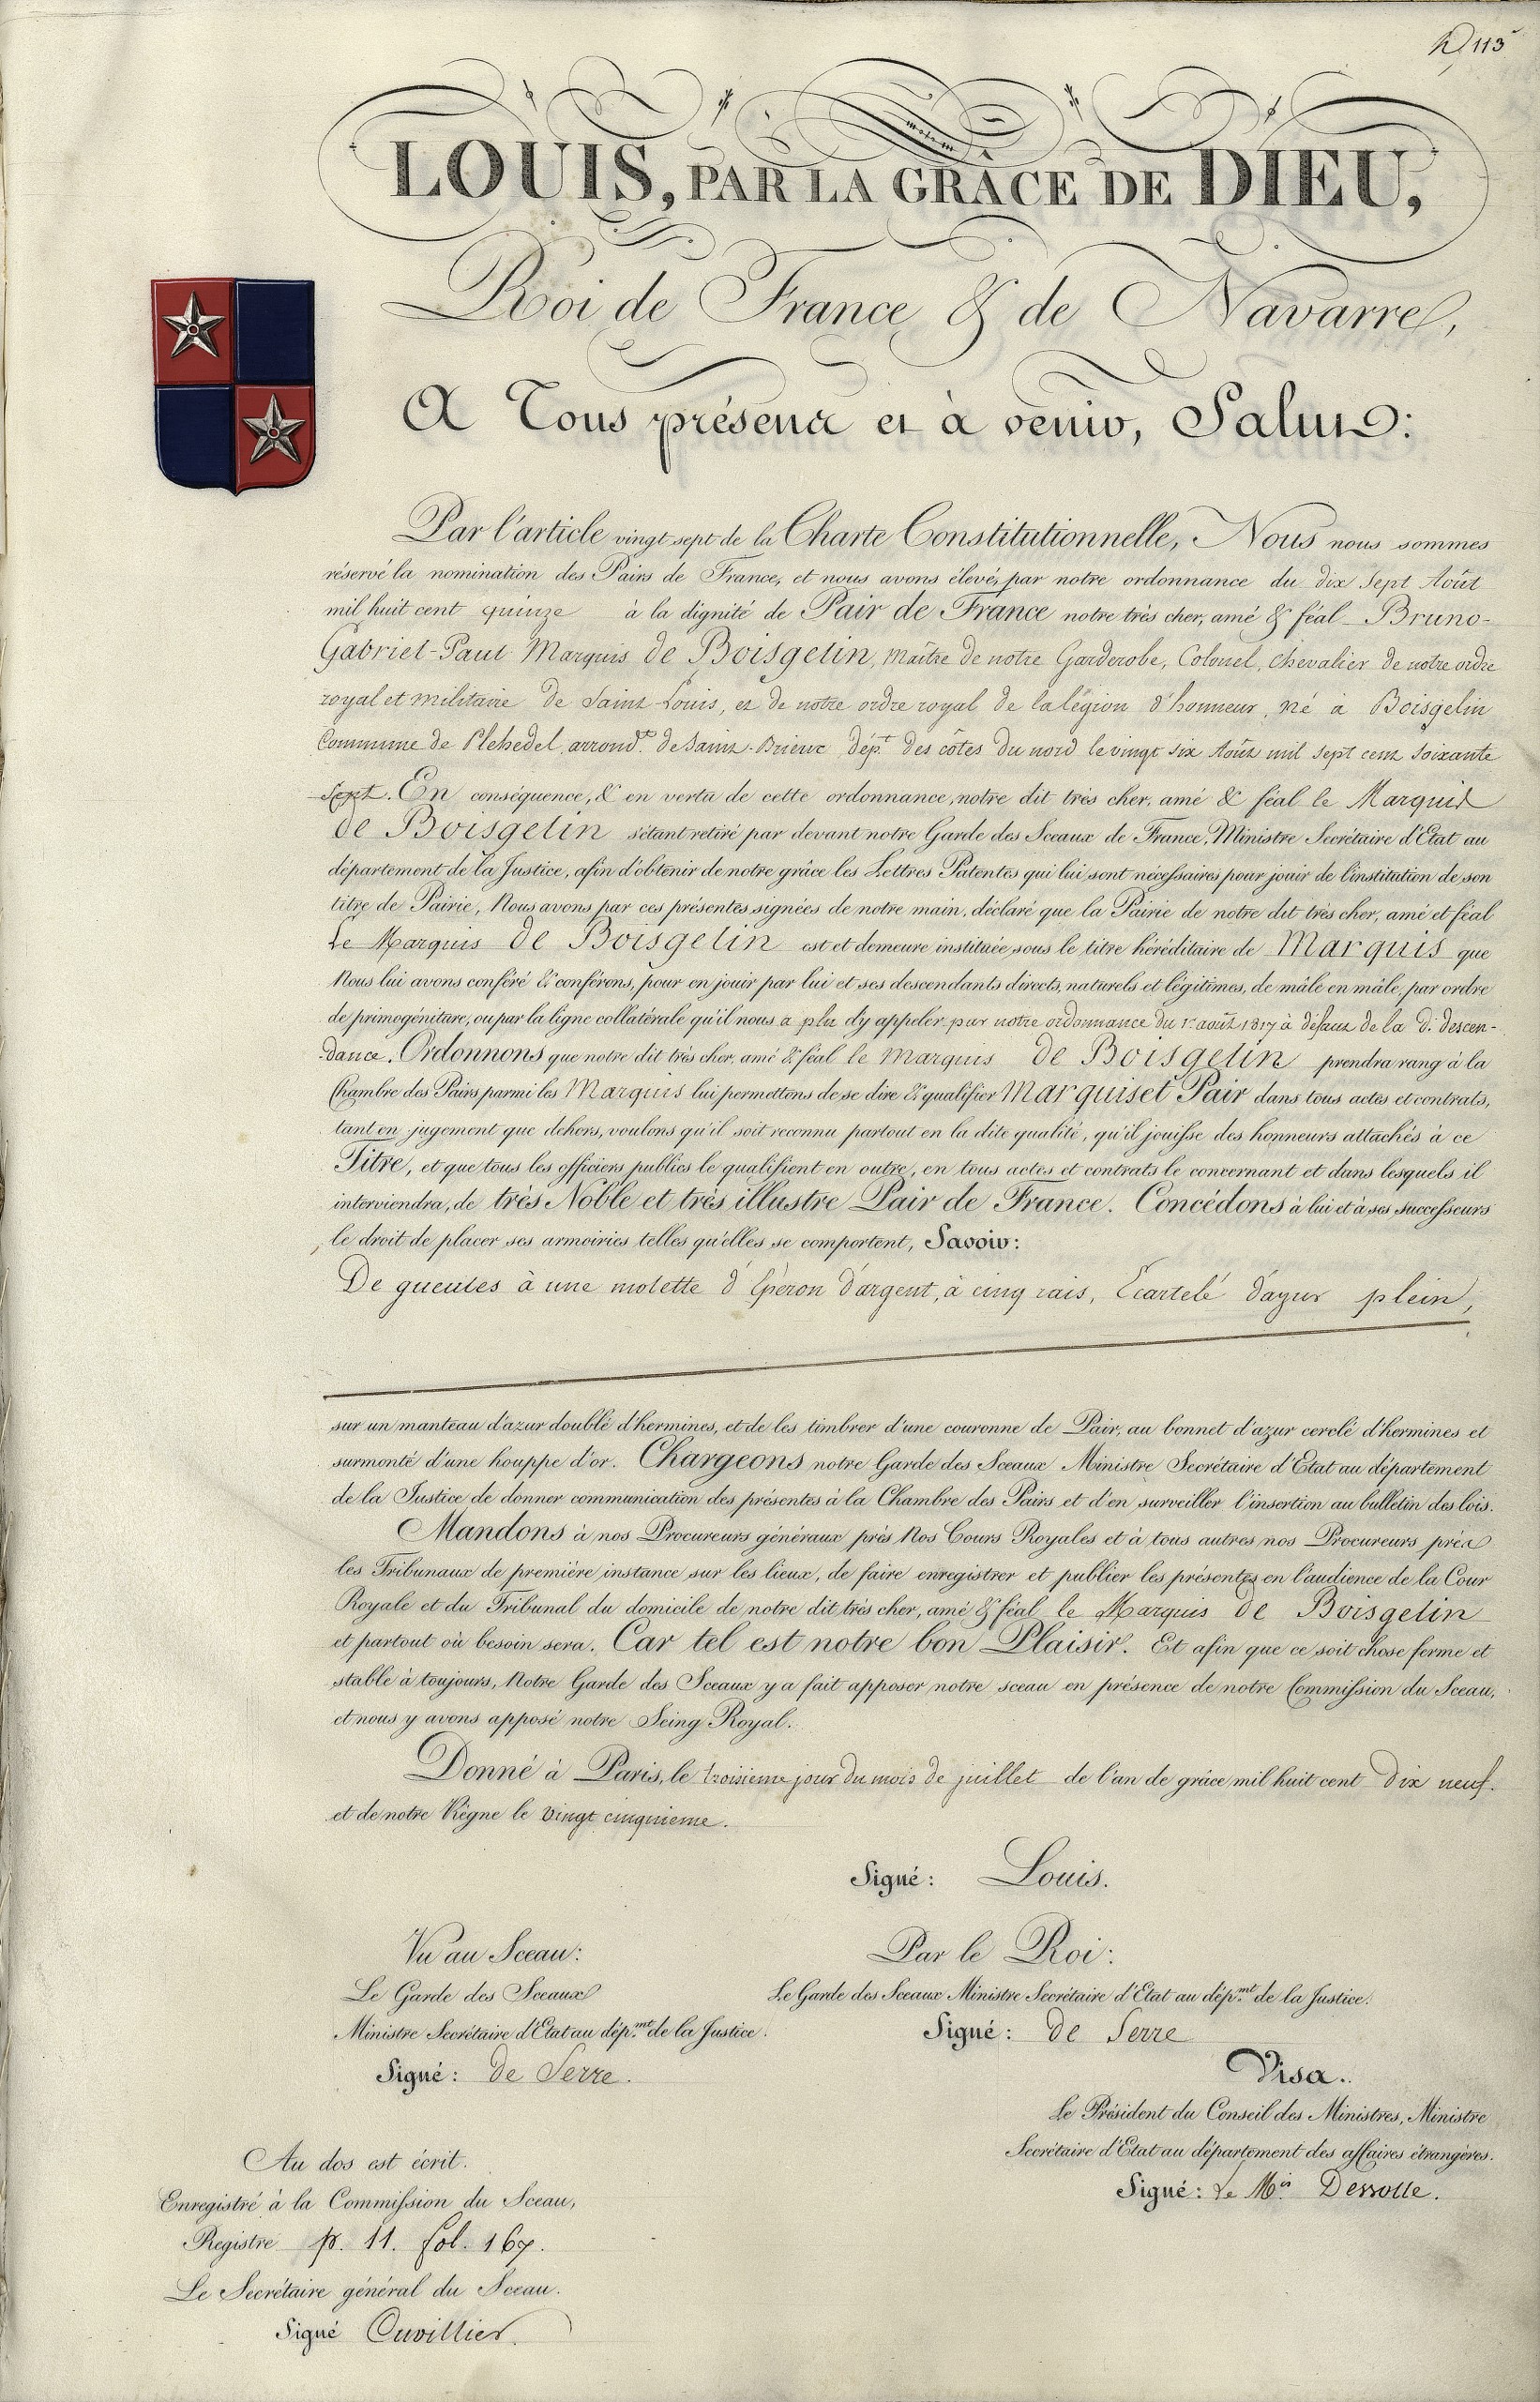 113
LOUIS, PAR LA GRÂCE DE DIEU,
Roi de France & de Navarre,
A Tous présens et à venir, Salut:
Par l'article vingt sept de la Charte Constitutionnelle, Nous nous sommes
réservé la nomination des Pairs de France, et nous avons élevé, par notre ordonnance du dix sept Août
mil huit cent quinze à la dignité de Pair de France notre très cher, amé & féal Bruno-
Gabriel-Paul Marquis de Boisgelin, Maître de notre Garderobe, Colonel, chevalier de notre ordre
royal et militaire de Saint Louis, et de notre ordre royal de la légion d'honneur, né à Boisgelin
Commune de Plehedel, arrond.t de Saint-Brieuc dép.t des côtes du nord le vingt six Août mil sept cent soixante
sept. En conséquence, & en vertu de cette ordonnance, notre dit très cher, amé & féal le Marquis
de Boisgelin s'étant retiré par devant notre Garde des Sceaux de France, Ministre Secrétaire d'Etat au
département de la Justice, afin d'obtenir de notre grâce les Lettres Patentes qui lui sont nécessaires pour jouir de l'institution de son
titre de Pairie, Nous avons par ces présentes signées de notre main, déclaré que la Pairie de notre dit très cher, amé et féal
Le Marquis de Boisgelin est et demeure instituée sous le titre héréditaire de Marquis que
Nous lui avons conféré & conférons, pour en jouir par lui et ses descendants directs, naturels et légitimes, de mâle en mâle, par ordre
de primogéniture, ou par la ligne collatérale qu'il nous a plu d'y appeler par notre ordonnance du 1er août 1817 à défaut de la d. descen-
-dance. Ordonnons que notre dit très cher, amé & féal le Marquis de Boisgelin prendra rang à la
Chambre des Pairs parmi les Marquis lui permettons de se dire & qualifier Marquis et Pair dans tous actes et contrats,
tant en jugement que dehors, voulons qu'il soit reconnu partout en la dite qualité, qu'il jouisse des honneurs attachés à ce
Titre, et que tous les officiers publics le qualifient en outre, en tous actes et contrats le concernant et dans lesquels il
interviendra, de très Noble et très illustre Pair de France. Concédons à lui et à ses successeurs
le droit de placer ses armoiries telles qu'elles se comportent, Savoir:
De gueules à une molette d'Eperon d'argent, à cinq rais, Ecartelé d'azur plein,
sur un manteau d'azur doublé d'hermines, et de les timbrer d'une couronne de Pair, au bonnet d'azur cerclé d'hermines et
surmonté d'une houppe d'or. Chargeons notre Garde des Sceaux Ministre Secrétaire d'Etat au département
de la Justice de donner communication des présentes à la Chambre des Pairs et d'en surveiller l'insertion au bulletin des lois.
Mandons à nos Procureurs généraux près Nos Cours Royales et à tous autres nos Procureurs près
les Tribunaux de première instance sur les lieux, de faire enregistrer et publier les présentes en l'audience de la Cour
Royale et du Tribunal du domicile de notre dit très cher, amé & féal le Marquis de Boisgelin
et partout où besoin sera. Car tel est notre bon Plaisir. Et afin que ce soit chose ferme et
stable à toujours, Notre Garde des Sceaux y a fait apposer notre sceau en présence de notre Commission du Sceau,
et nous y avons apposé notre Seing Royal.
Donné à Paris, le troisieme jour du mois de juillet de l'an de grâce mil huit cent dix neuf.
et de notre Règne le vingt cinquieme.
Signé: Louis.
Vu au Sceau:
Le Garde des Sceaux
Ministre Secrétaire d'Etat au dép.mt de la Justice.
Signé: de Serre.
Par le Roi:
Le Garde des Sceaux Ministre Secrétaire d'Etat au dép.mt de la Justice.
Signé: de Serre
Visa.
Le Président du Conseil des Ministres, Ministre
Secrétaire d'Etat au département des affaires étrangères.
Signé: Le M.is Dessolle.
Au dos est écrit.
Enregistré à la Commission du Sceau,
Registre p. 11. fol. 167.
Le Secrétaire général du Sceau.
Signé Cuvillier.